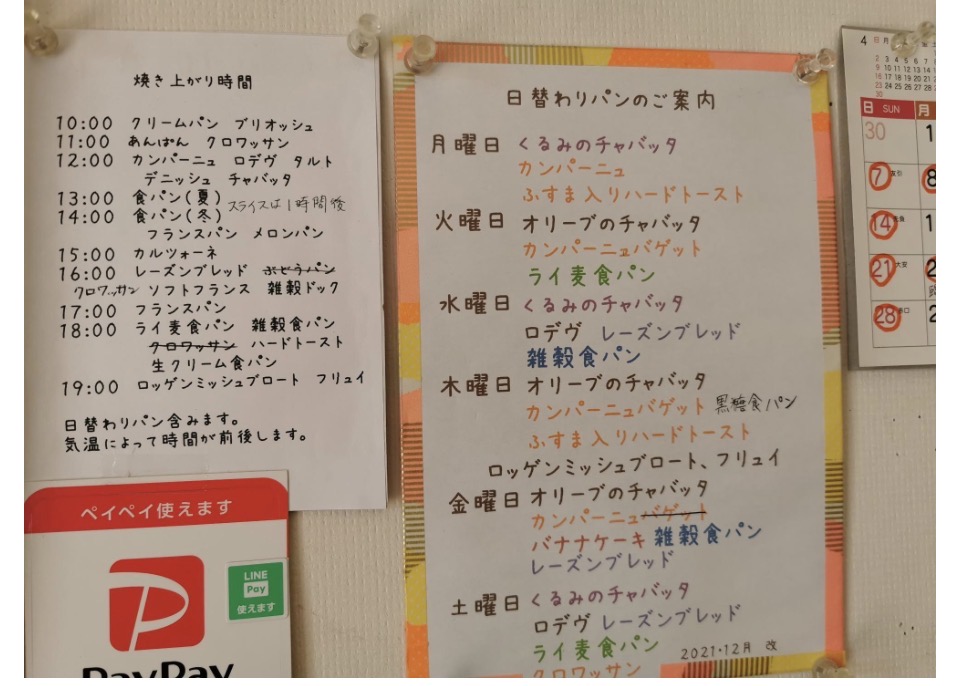 焼き上がり時間
10:00 クリームパン ブリオッシュ
11:00 あんぱん クロワッサン
12:00 カンパーニュ ロデヴ タルト
デニッシュ チャバッタ
13:00 食パン(夏) スライスは1時間後
14:00 食パン(冬)
フランスパン メロンパン
15:00 カルツォーネ
16:00 レーズンブレッド ぶどうパン
クロワッサン ソフトフランス 雑穀ドック
17:00 フランスパン
18:00 ライ麦食パン 雑穀食パン
クロワッサン ハードトースト
生クリーム食パン
19:00 ロッゲンミッシュブロート フリュイ
日替わりパン含みます。
気温によって時間が前後します。
ペイペイ使えます
LINE
Pay
使えます
PayPay
日替わりパンのご案内
月曜日 くるみのチャバッタ
カンパーニュ
ふすま入りハードトースト
火曜日 オリーブのチャバッタ
カンパーニュバゲット
ライ麦食パン
水曜日 くるみのチャバッタ
ロデヴ レーズンブレッド
雑穀食パン
木曜日 オリーブのチャバッタ
カンパーニュバゲット 黒糖食パン
ふすま入りハードトースト
ロッゲンミッシュブロート、フリュイ
金曜日 オリーブのチャバッタ
カンパーニュバゲット
バナナケーキ 雑穀食パン
レーズンブレッド
土曜日 くるみのチャバッタ
ロデヴ レーズンブレッド
ライ麦食パン 2021・12月 改
クロワッサン
4 日 月
2 3 4 5 6 7
9 10 11 12 13 14
16 17 18 19 20 21
23 24 25 26 27 28
30
日 SUN 月
30 1
7 友引 8
14 先負
21 大安 2
28 2